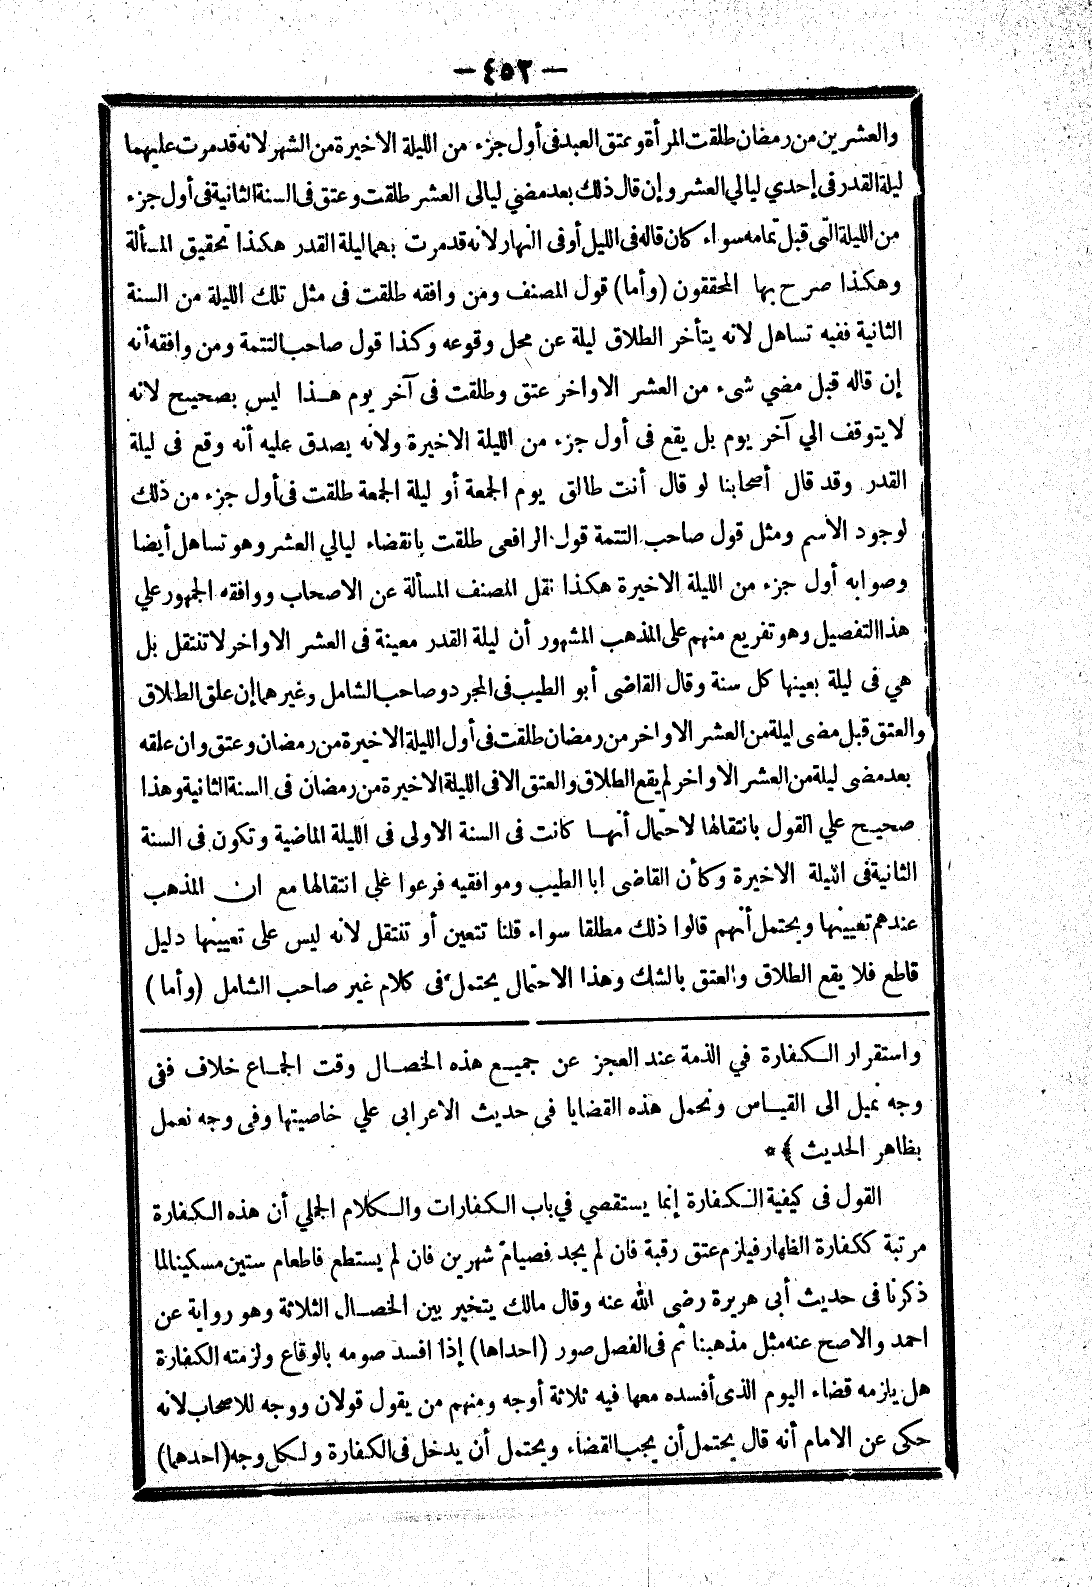 — ٤٥٣ —
والعشرين من رمضان طلقت المرأة وعتق العبد فى أول جزء من الليلة الاخيرة من الشهر لانه قد مرت عليهما
ليلة القدر فى إحدي ليالي العشر وإن قال ذلك بعد مضي ليالى العشر طلقت وعتق فى السنة الثانية فى أول جزء
من الليلة التى قبل تمامه سواء كان قاله فى الليل أو فى النهار لانه قد مرت بهما ليلة القدر هكذا تحقيق المسألة
وهكذا صرح بها المحققون (وأما) قول المصنف ومن وافقه طلقت فى مثل تلك الليلة من السنة
الثانية ففيه تساهل لانه يتأخر الطلاق ليلة عن محل وقوعه وكذا قول صاحب التتمة ومن وافقه أنه
إن قاله قبل مضي شىء من العشر الاواخر عتق وطلقت فى آخر يوم هذا ليس بصحيح لانه
لا يتوقف الي آخر يوم بل يقع فى أول جزء من الليلة الاخيرة ولانه يصدق عليه أنه وقع فى ليلة
القدر وقد قال أصحابنا لو قال أنت طالق يوم الجمعة أو ليلة الجمعة طلقت فى أول جزء من ذلك
لوجود الاسم ومثل قول صاحب التتمة قول الرافعى طلقت بانقضاء ليالي العشر وهو تساهل أيضا
وصوابه أول جزء من الليلة الاخيرة هكذا نقل المصنف المسألة عن الاصحاب ووافقه الجمهور علي
هذا التفصيل وهو تفريع منهم على المذهب المشهور أن ليلة القدر معينة فى العشر الاواخر لا تنتقل بل
هي فى ليلة بعينها كل سنة وقال القاضى أبو الطيب فى المجرد وصاحب الشامل وغيرهما إن علق الطلاق
والعتق قبل مضى ليلة من العشر الاواخر من رمضان طلقت فى أول الليلة الاخيرة من رمضان وعتق وان علقه
بعد مضى ليلة من العشر الاواخر لم يقع الطلاق والعتق الا فى الليلة الاخيرة من رمضان فى السنة الثانية وهذا
صحيح علي القول بانتقالها لاحتمال أنها كانت فى السنة الاولى فى الليلة الماضية وتكون فى السنة
الثانية فى الليلة الاخيرة وكأن القاضى ابا الطيب وموافقيه فرعوا على انتقالها مع ان المذهب
عندهم تعيينها ويحتمل أنهم قالوا ذلك مطلقا سواء قلنا تتعين أو تنتقل لانه ليس على تعيينها دليل
قاطع فلا يقع الطلاق والعتق بالشك وهذا الاحتمال يحتمل فى كلام غير صاحب الشامل (وأما)
واستقرار الكفارة في الذمة عند العجز عن جميع هذه الخصال وقت الجماع خلاف ففى
وجه نميل الى القياس ونحمل هذه القضايا فى حديث الاعرابى علي خاصيتها وفى وجه نعمل
بظاهر الحديث ﴾ *
القول فى كيفية الكفارة إنما يستقصي في باب الكفارات والكلام الجملي أن هذه الكفارة
مرتبة ككفارة الظهار فيلزم عتق رقبة فان لم يجد فصيام شهرين فان لم يستطع فاطعام ستين مسكينا لما
ذكرنا فى حديث أبى هريرة رضى الله عنه وقال مالك يتخير بين الخصال الثلاثة وهو رواية عن
احمد والاصح عنه مثل مذهبنا ثم فى الفصل صور (احداها) إذا افسد صومه بالوقاع ولزمته الكفارة
هل يلزمه قضاء اليوم الذى أفسده معها فيه ثلاثة أوجه ومنهم من يقول قولان ووجه للاصحاب لانه
حكى عن الامام أنه قال يحتمل أن يجب القضاء ويحتمل أن يدخل فى الكفارة ولكل وجه (احدهما)